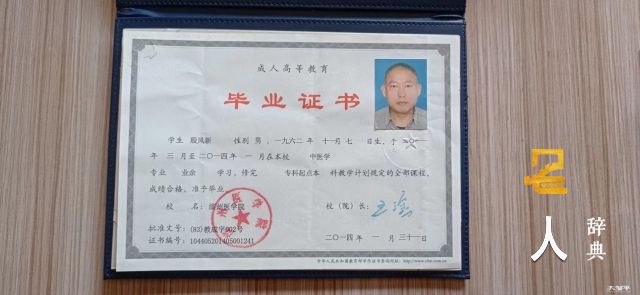 成人高等教育
毕业证书
学生 殷凤新 性别 男，一九六二年 十一月 七 日生，于 二〇一一
年 三 月至二〇一四年 一 月在本校 中医学
专业 业余 学习，修完 专科起点本 科教学计划规定的全部课程，
成绩合格，准予毕业。
校 名：滨州医学院 校（院）长：
批准文号：(83)教成字002号
证书编号：104405201405001241 二〇一四年 一 月 三十一日
中华人民共和国教育部学历证书查询网址：http://www.chsi.com.cn
人
辞典